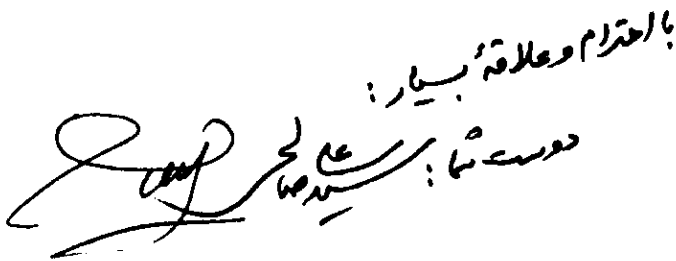 با احترام و علاقهٔ بسیار:
دوست شما: سیدعلی صالحی